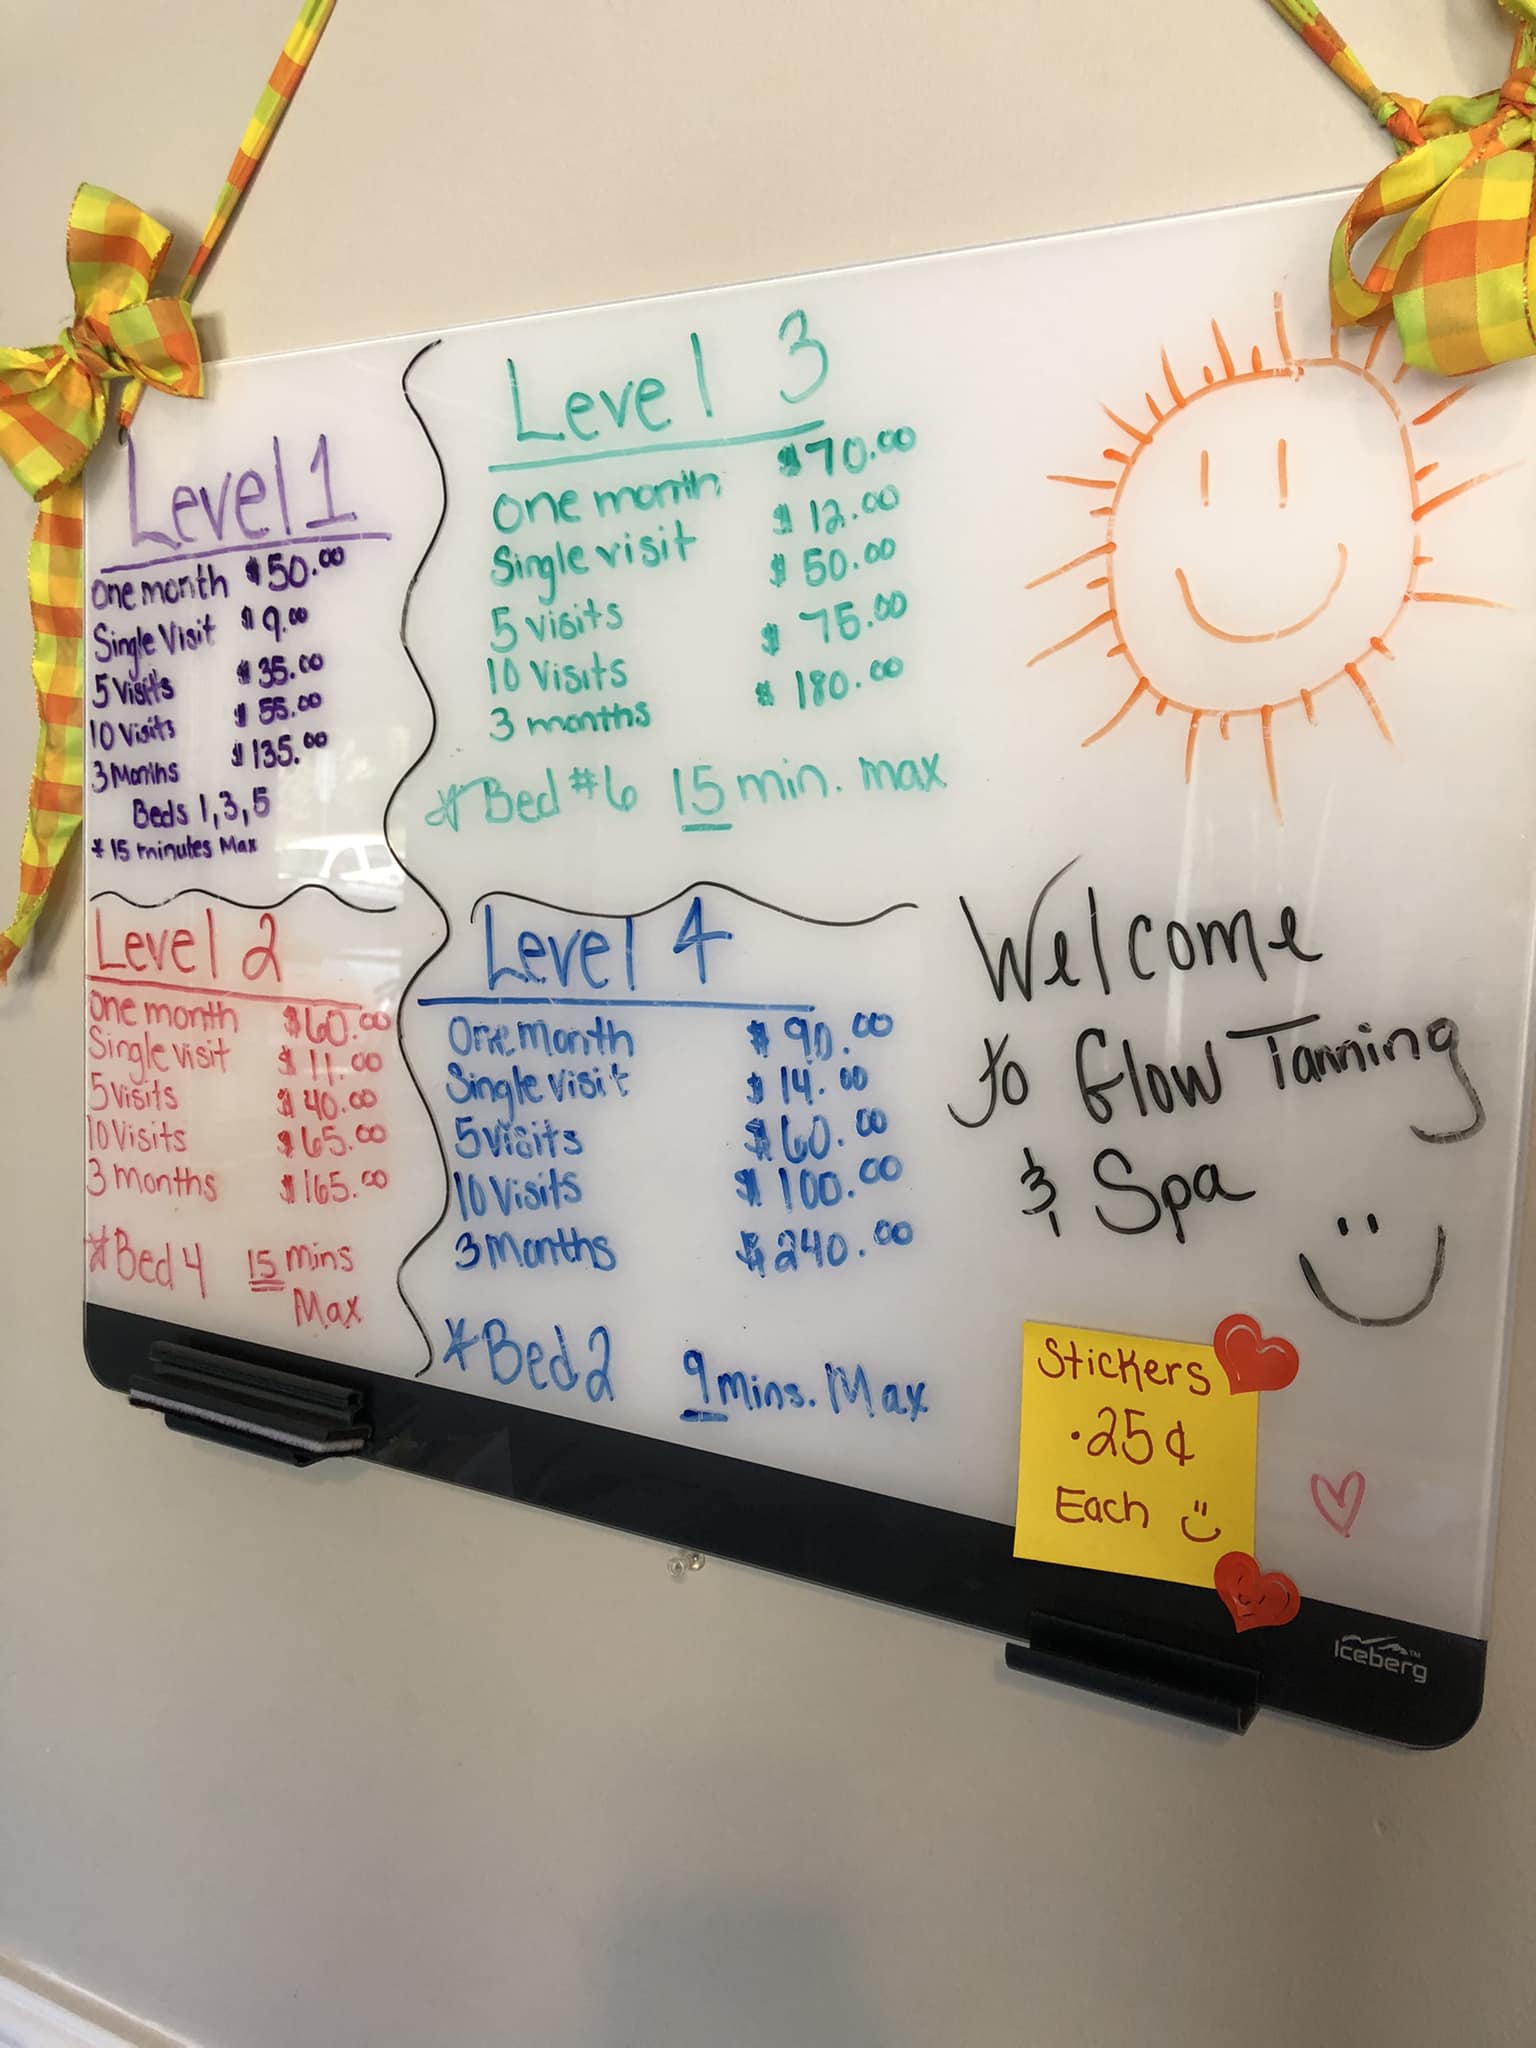 Level 1
One month $50.00
Single Visit $9.00
5 Visits $35.00
10 Visits $55.00
3 Months $135.00
Beds 1,3,5
* 15 minutes Max
Level 2
One month $60.00
Single visit $11.00
5 visits $40.00
10 Visits $65.00
3 months $165.00
*Bed 4 15 mins
Max
Level 3
One month $70.00
Single visit $12.00
5 visits $50.00
10 Visits $75.00
3 months $180.00
* Bed #6 15 min. max
Level 4
One month $90.00
Single visit $14.00
5 visits $60.00
10 Visits $100.00
3 Months $240.00
* Bed 2 9 mins. Max
Welcome
to Glow Tanning
& Spa
Stickers
.25¢
Each
Iceberg™